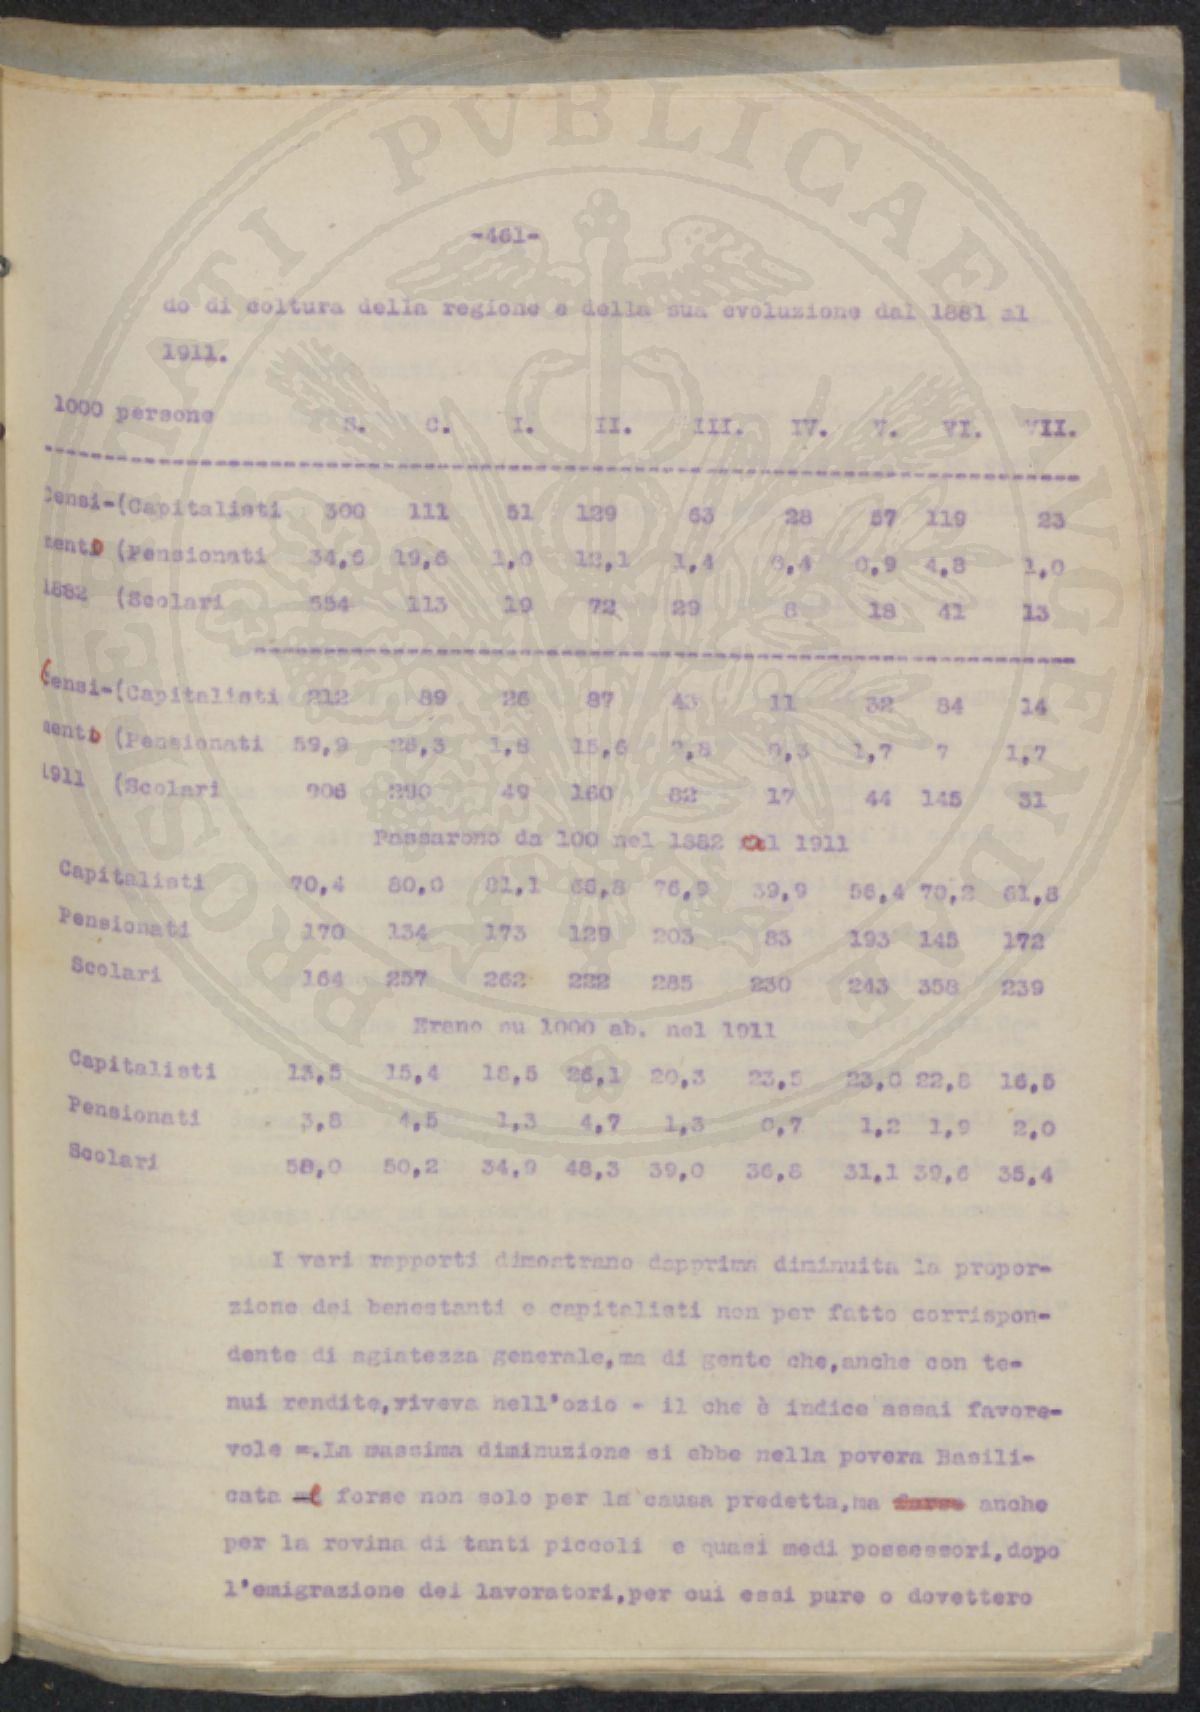 PROSPERITATI PUBLICAE AUGENDAE
-461-
do di coltura della regione e della sua evoluzione dal 1881 al
1911.
1000 persone S. C. I. II. III. IV. V. VI. VII.
Censi-(Capitalisti 300 111 51 129 63 28 57 119 23
mento (Pensionati 34,6 19,6 1,0 12,1 1,4 0,4 0,9 4,8 1,0
1882 (Scolari 554 113 19 72 29 8 18 41 13
Censi-(Capitalisti 212 89 26 87 43 11 32 84 14
mento (Pensionati 59,9 26,3 1,8 15,6 2,8 0,3 1,7 7 1,7
1911 (Scolari 906 290 49 160 82 17 44 145 31
Passarono da 100 nel 1882 al 1911
Capitalisti 70,4 80,0 81,1 66,8 76,9 39,9 56,4 70,2 61,8
Pensionati 170 134 173 129 203 83 193 145 172
Scolari 164 257 262 222 285 230 243 358 239
Erano su 1000 ab. nel 1911
Capitalisti 13,5 15,4 18,5 26,1 20,3 23,5 23,0 22,8 16,5
Pensionati 3,8 4,5 1,3 4,7 1,3 0,7 1,2 1,9 2,0
Scolari 58,0 50,2 34,9 48,3 39,0 36,8 31,1 39,6 35,4
I vari rapporti dimostrano dapprima diminuita la propor-
zione dei benestanti e capitalisti non per fatto corrispon-
dente di agiatezza generale,ma di gente che,anche con te-
nui rendite,viveva nell'ozio - il che è indice assai favore-
vole -.La massima diminuzione si ebbe nella povera Basili-
cata e forse non solo per la causa predetta,ma forse anche
per la rovina di tanti piccoli e quasi medi possessori,dopo
l'emigrazione dei lavoratori,per cui essi pure o dovettero